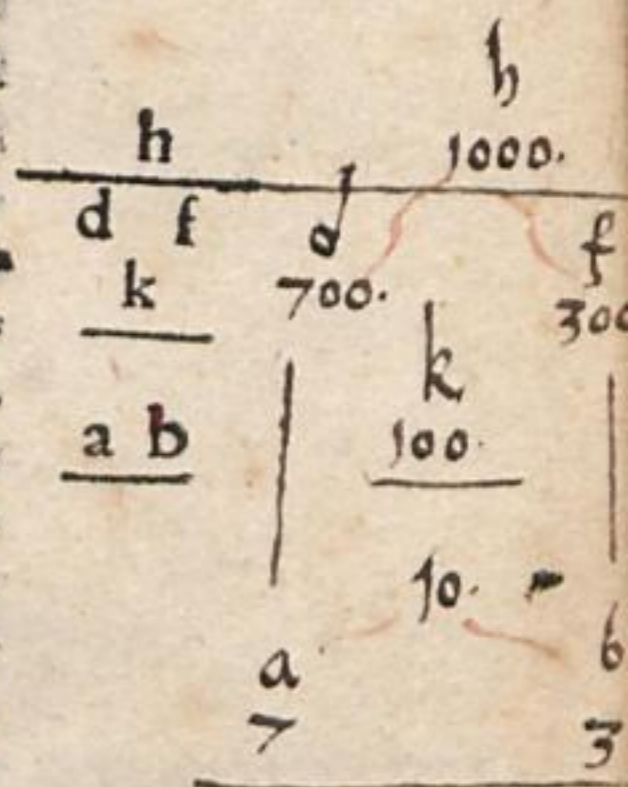 h
d f
k
a b
h
1000.
d f
700. 300
k
100.
10.
a b
7 3